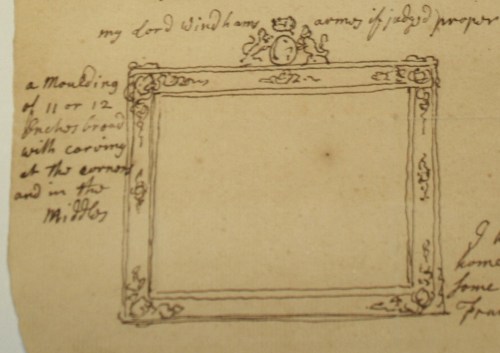 my Lord Windhams armes if judgd proper
a Moulding
of 11 or 12
Inches broad
with carving
at the corners
and in the
Middles
home
some
Fra